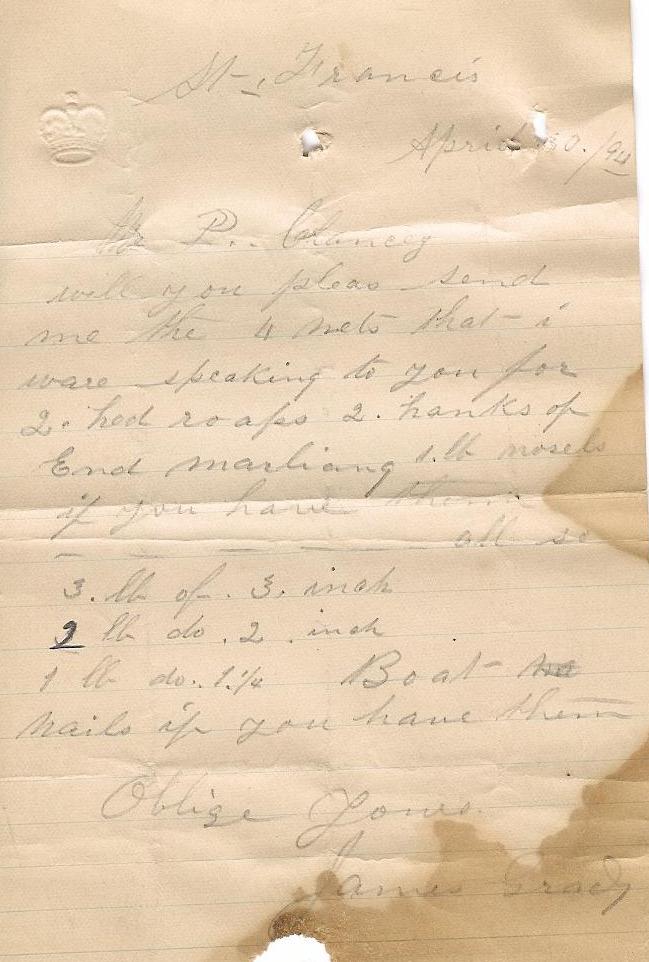 St, Francis
April 30./94
Mr P.. Clancey
will you pleas send
me the 4 nets that i
ware speaking to you for
2. hed roaps 2. hanks of
End marliang 1.lb nosels
if you have them
all so
3. lb of. 3. inch
2 lb do. 2. inch
1 lb do. 1.1/4 Boat
nails if you have them
Oblige Yours.
James Grady